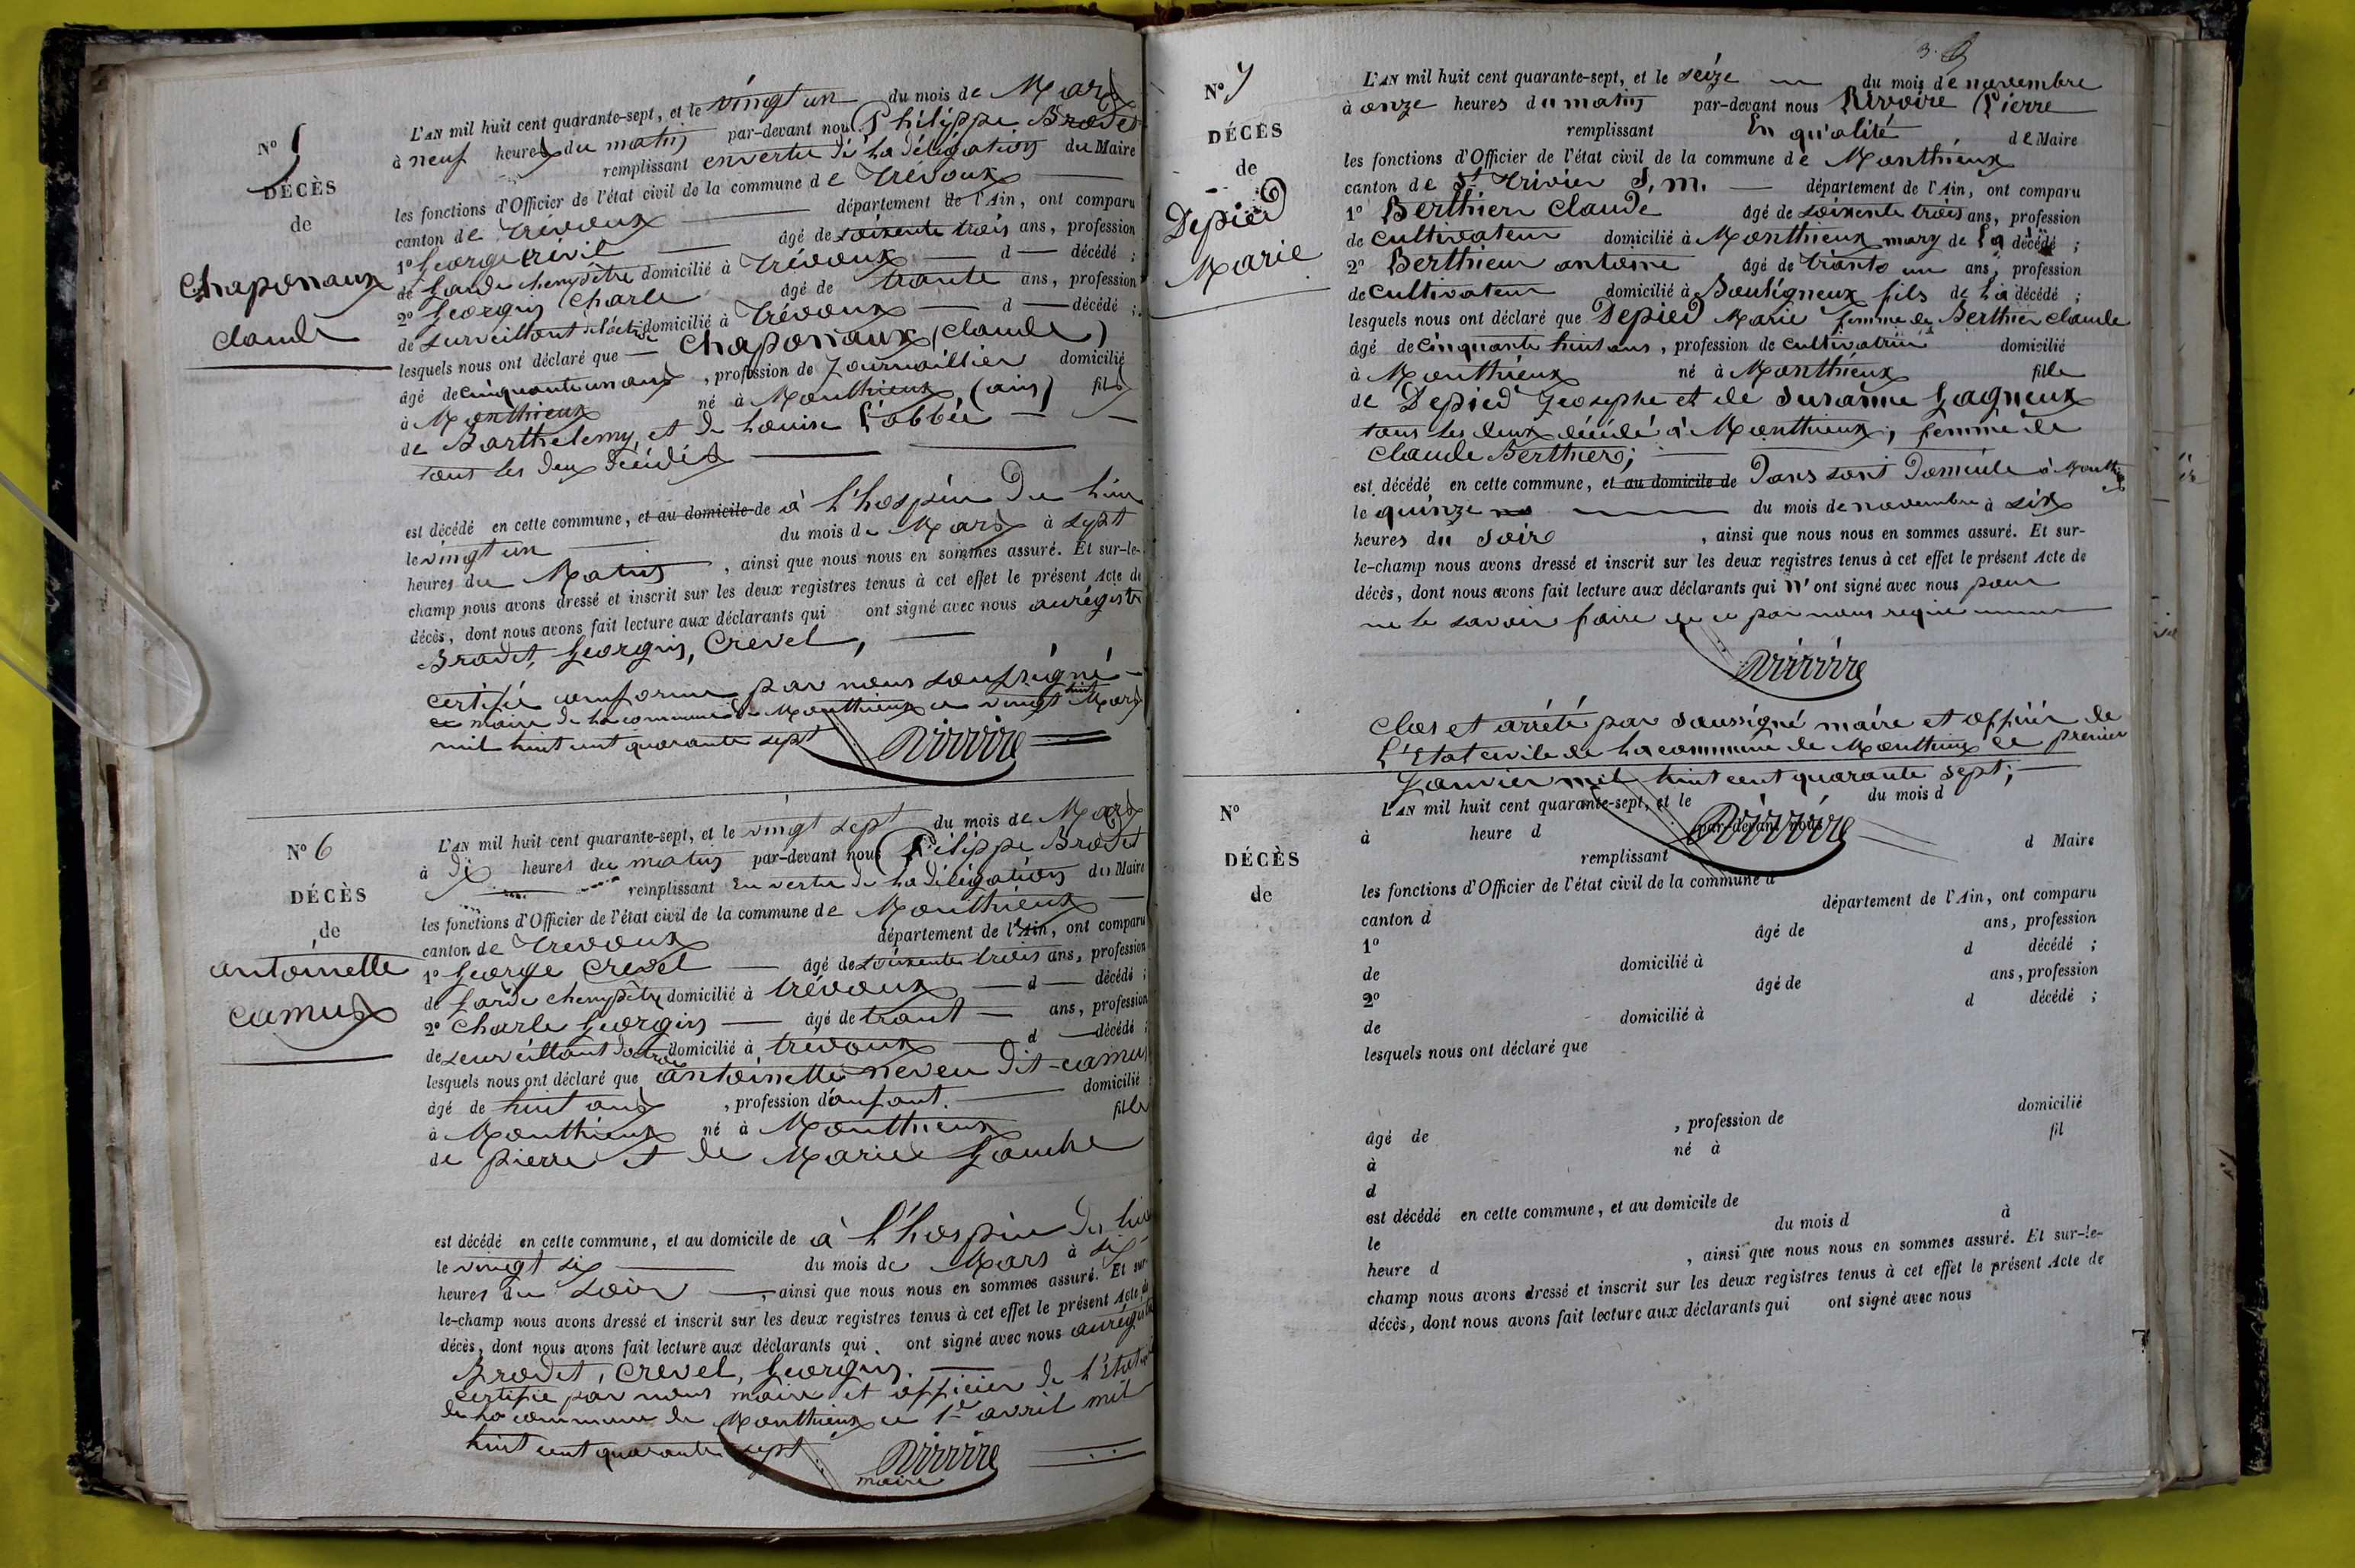 N° 5
DÉCÈS
de
Chaponaux
claude
L'AN mil huit cent quarante-sept, et le vingt un du mois de Mars
à neuf heures du matin par-devant nous Philippe Brodet
remplissant en vertu de la délégation du Maire
les fonctions d'Officier de l'état civil de la commune de Trévoux
canton de Trévoux département de l'Ain, ont comparu
1° George crevel âgé de soixente trois ans, profession
de garde champêtre domicilié à Trévoux d décédé ;
2° Georgin Charle âgé de trante ans, profession
de surveillant domicilié à Trévoux d décédé ;
lesquels nous ont déclaré que Chaponaux (Claude)
âgé de cinquante un ans, profession de Journaillier domicilié
à Monthieux né à Monthieux (ain) fils
de Barthelemy, et de Louise Labbée
tous les deux décédés
est décédé en cette commune, et au domicile de à l'hospice du lieu
le vingt un du mois de Mars à sept
heures du Matin, ainsi que nous nous en sommes assuré. Et sur-le-
champ nous avons dressé et inscrit sur les deux registres tenus à cet effet le présent Acte de
décès, dont nous avons fait lecture aux déclarants qui ont signé avec nous au régistre
Brodet, Georgin, Crevel,
certifié conforme par nous soussigné
maire de la commune de Monthieux ce vingt huit Mars
mil huit cent quarante sept
Rivoire
N° 6
DÉCÈS
de
antoinette
camus
L'AN mil huit cent quarante-sept, et le vingt sept du mois de Mars
à dix heures du matin par-devant nous Pilippe Brodet
remplissant En vertu de la délégation du Maire
les fonctions d'Officier de l'état civil de la commune de Monthieux
canton de Trevoux département de l'Ain, ont comparu
1° George Crevel âgé de soixente trois ans, profession
de Garde chempêtre domicilié à trévoux d décédé ;
2° Charle Georgin âgé de trant ans, profession
de surveillant domicilié à trévoux d décédé ;
lesquels nous ont déclaré que antoinette neveu dit-camus
âgé de huit ans, profession d'anfant. domicilié
à Monthieux né à Monthieux fille
de pierre et de Marie Gauche
est décédé en cette commune, et au domicile de à l'hospice du lieu
le vingt six du mois de Mars à six
heures du soir, ainsi que nous nous en sommes assuré. Et sur-
le-champ nous avons dressé et inscrit sur les deux registres tenus à cet effet le présent Acte de
décès, dont nous avons fait lecture aux déclarants qui ont signé avec nous au régistre
Brodet, Crevel, Georgin.
certifié par nous maire et officier de l'État
de la commune de Monthieux ce 1er avril mil
huit cent quarante sept
Rivoire
maire
3.
N° 7
DÉCÈS
de
Depied
Marie
L'AN mil huit cent quarante-sept, et le seize du mois de novembre
à onze heures du matin par-devant nous Rivoire Pierre
remplissant En qu'alité de Maire
les fonctions d'Officier de l'état civil de la commune de Monthieux
canton de St Trivier S. M. département de l'Ain, ont comparu
1° Berthier Claude âgé de soixente trois ans, profession
de cultivateur domicilié à Monthieux mary de la décédé ;
2° Berthier antoine âgé de trante un ans, profession
de Cultivateur domicilié à Bouligneux fils de la décédé ;
lesquels nous ont déclaré que Depied Marie femme de Berthier claude
âgé de cinquante huit ans, profession de cultivatrice domicilié
à Monthieux né à Monthieux fille
de Depied Joosephe et de Suzanne Gagneux
tous les deux décédé à Monthieux, femme de
Claude Berthier;
est décédé en cette commune, et au domicile de Dans sont Domicile à Month
le quinze du mois de novembre à six
heures du Soire, ainsi que nous nous en sommes assuré. Et sur-
le-champ nous avons dressé et inscrit sur les deux registres tenus à cet effet le présent Acte de
décès, dont nous avons fait lecture aux déclarants qui n'ont signé avec nous pour
ne le savoir faire de ce par nous requi
Rivoire
Clos et arrété par soussigné maire et officier de
l'Etat civile de la commune de Monthieux ce premier
Janvier mil huit cent quarante sept;
Rivoire
N°
DÉCÈS
de
L'AN mil huit cent quarante-sept, et le du mois d
à heure d par-devant nous
remplissant d Maire
les fonctions d'Officier de l'état civil de la commune d
canton d département de l'Ain, ont comparu
1° âgé de ans, profession
de domicilié à d décédé ;
2° âgé de ans, profession
de domicilié à d décédé ;
lesquels nous ont déclaré que
âgé de , profession de domicilié
à né à fil
d
est décédé en cette commune, et au domicile de
le du mois d à
heure d , ainsi que nous nous en sommes assuré. Et sur-le-
champ nous avons dressé et inscrit sur les deux registres tenus à cet effet le présent Acte de
décès, dont nous avons fait lecture aux déclarants qui ont signé avec nous